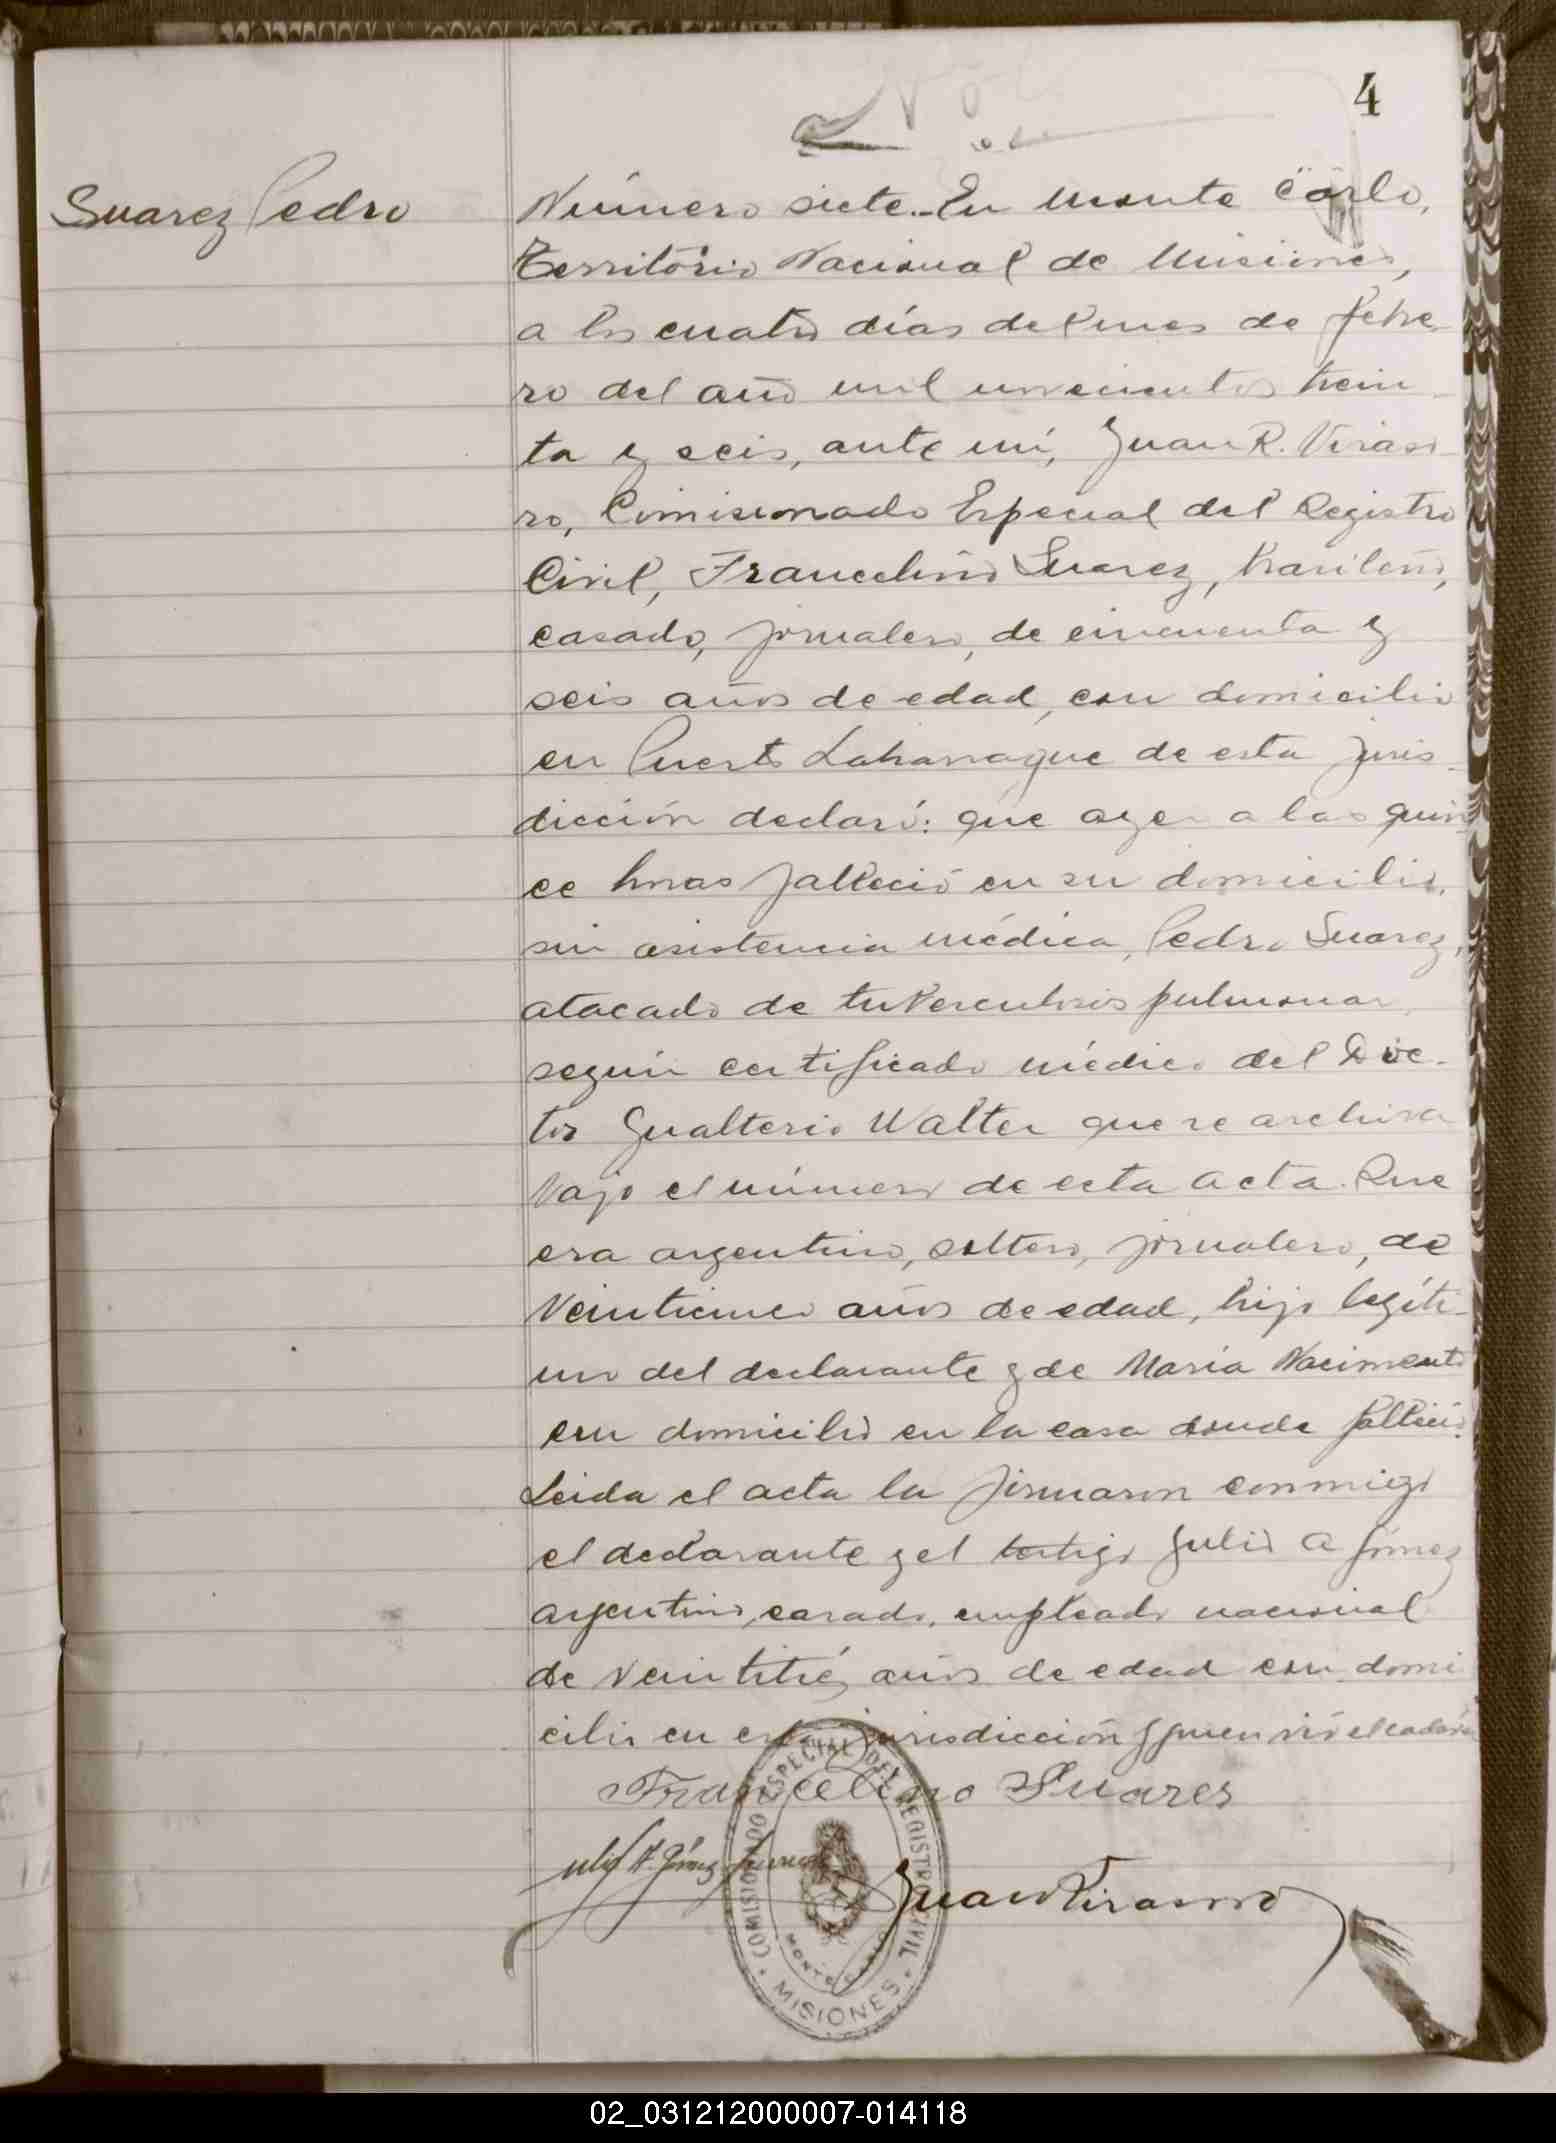 4
Suarez Pedro
Número siete.-En Monte Carlo,
Territorio Nacional de Misiones,
a los cuatro días del mes de febre
ro del año mil novecientos trein
ta y seis, ante mí, Juan R. Viraso
ro, Comisionado Especial del Registro
Civil, Francelino Suarez, brasileño,
casado, jornalero, de cincuenta y
seis años de edad, con domicilio
en Puerto Laharrague de esta juris
dicción declaró: que ayer a las quin
ce horas falleció en su domicilio,
sin asistencia médica, Pedro Suarez,
atacado de tuberculosis pulmonar
según certificado médico del Doc-
tor Gualterio Walter que se archiva
bajo el número de esta acta. Que
era argentino, soltero, jornalero, de
veinticinco años de edad, hijo legíti-
mo del declarante y de María Nacimento
con domicilio en la casa donde falleció.
Leida el acta la firmaron conmigo
el declarante y el testigo Julio A Gómez
argentino, casado, empleado nacional
de veintitrés años de edad con domi
cilio en esta jurisdicción y quien vió el cadáver
Francelino Suares
Julio A. Gómez
Juan Virasoro
COMISIONADO ESPECIAL DEL REGISTRO CIVIL
MONTE CARLO
MISIONES
02_031212000007-014118